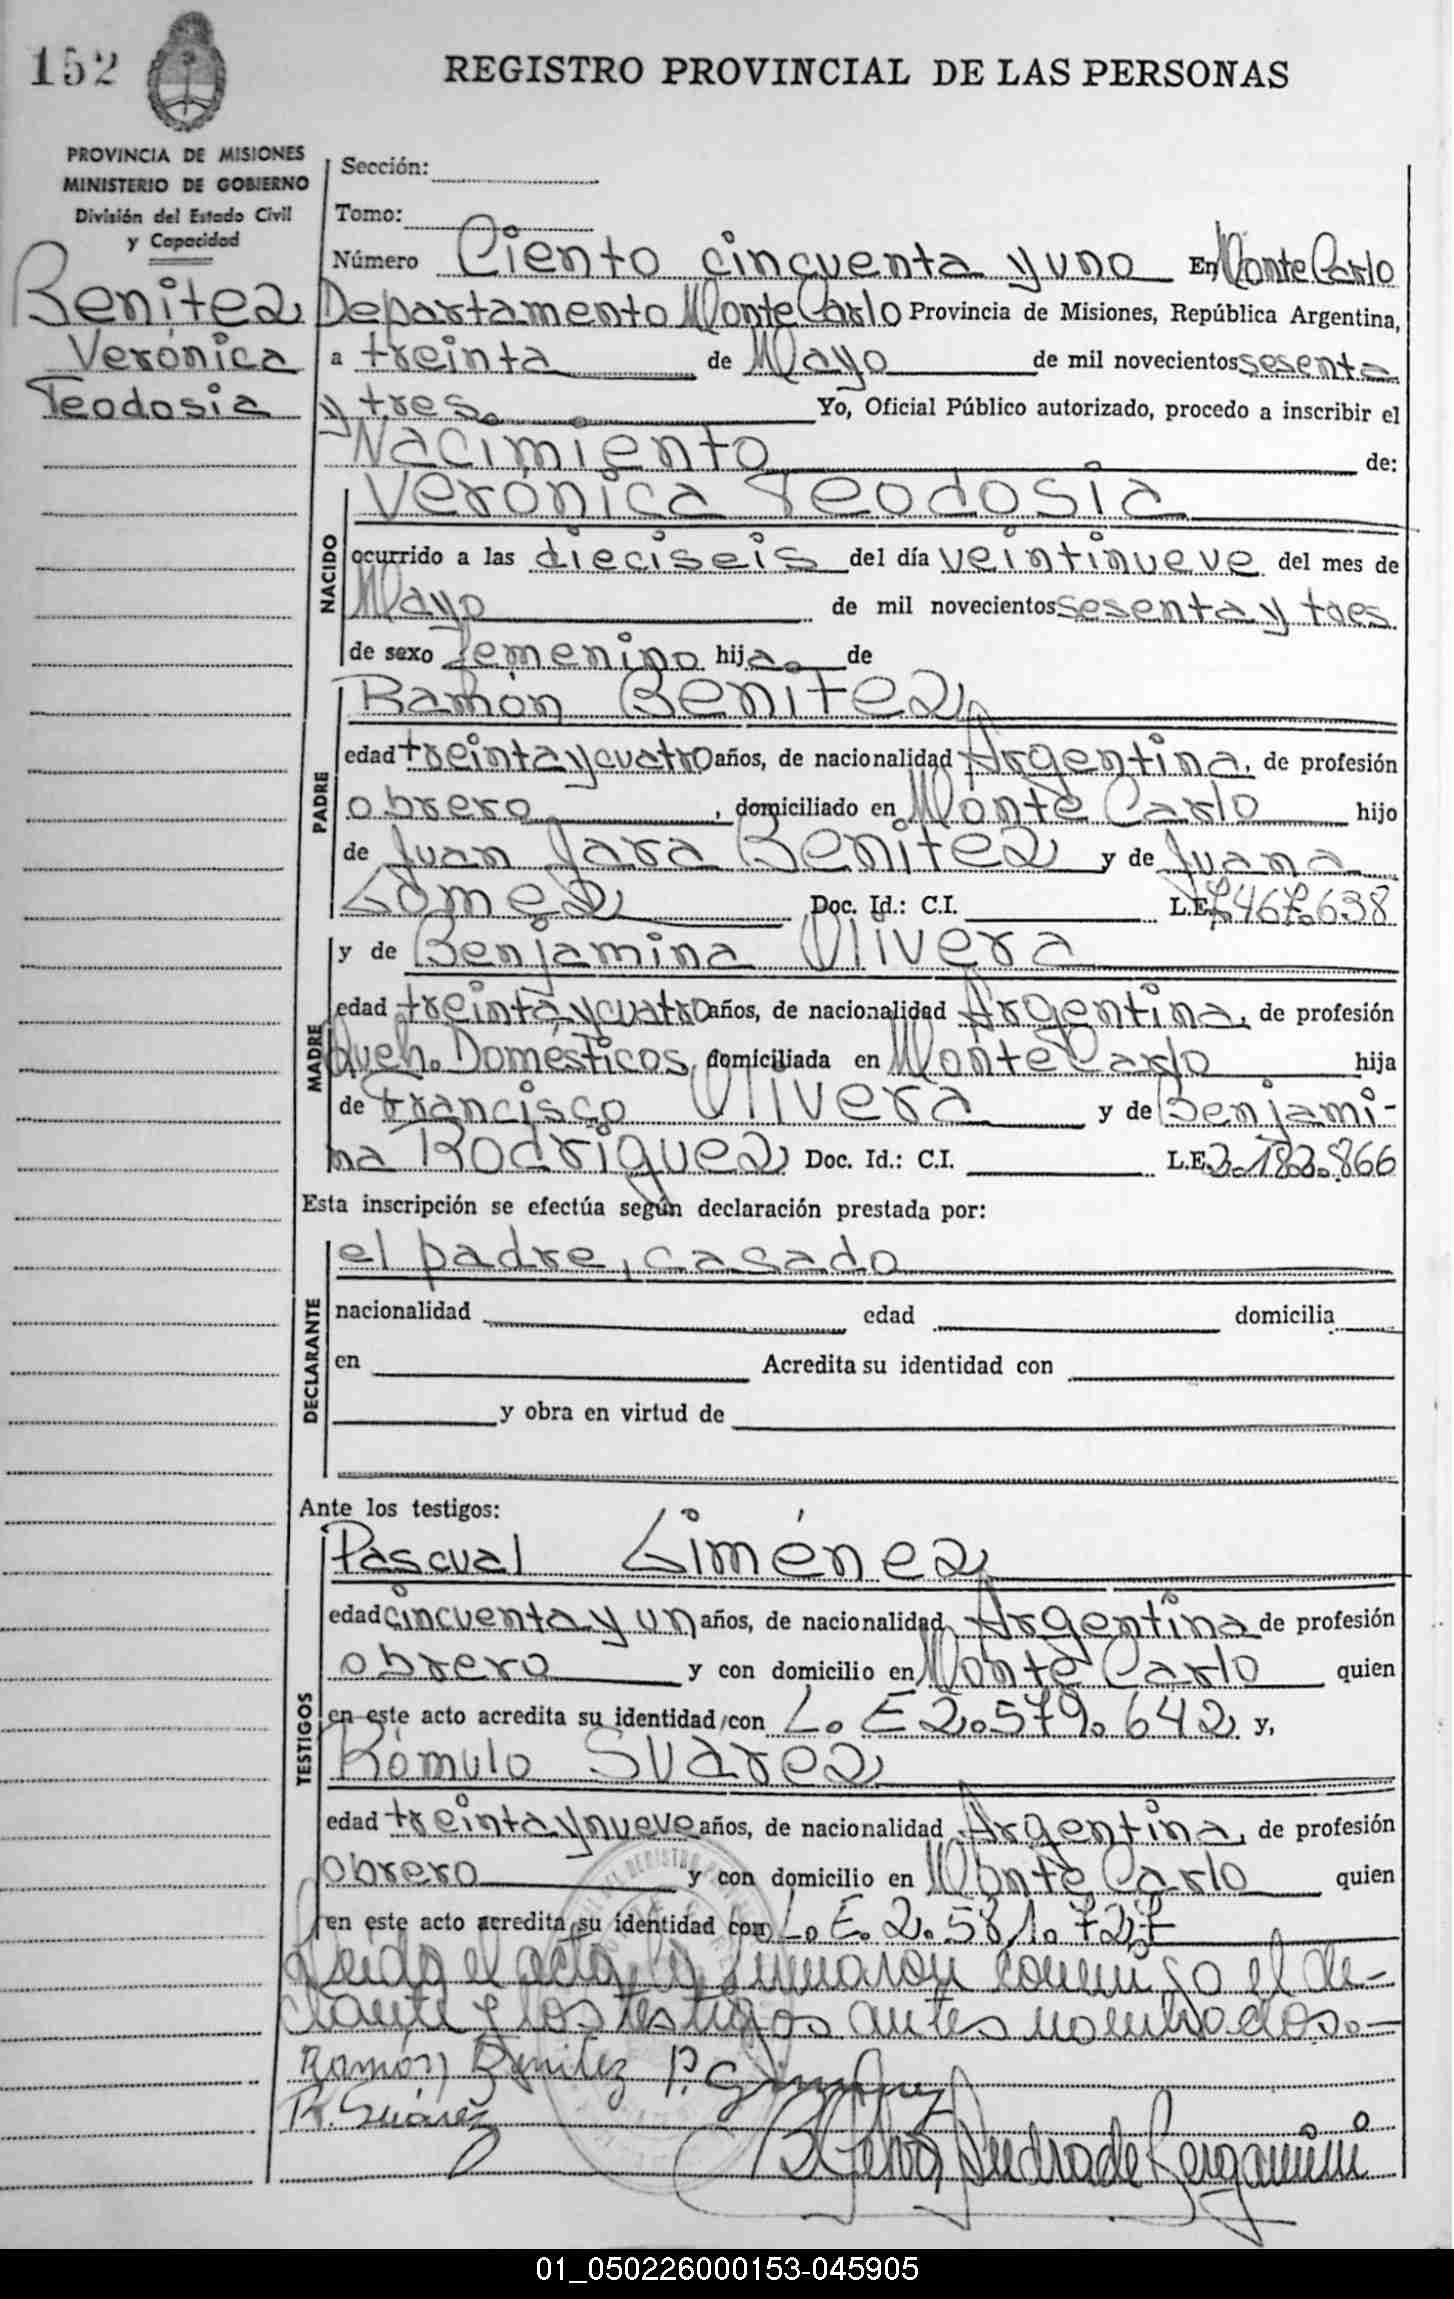 152
REGISTRO PROVINCIAL DE LAS PERSONAS
PROVINCIA DE MISIONES
MINISTERIO DE GOBIERNO
División del Estado Civil
y Capacidad
Benitez
Verónica
Teodosia
Sección:
Tomo:
Número Ciento cincuenta y uno En Monte Carlo
Departamento Monte Carlo Provincia de Misiones, República Argentina,
a treinta de Mayo de mil novecientos sesenta
y tres. Yo, Oficial Público autorizado, procedo a inscribir el
Nacimiento de:
Verónica Teodosia
NACIDO
ocurrido a las dieciseis del día veintinueve del mes de
Mayo de mil novecientos sesenta y tres.
de sexo femenino hija. de
Ramón Benitez
PADRE
edad treinta y cuatro años, de nacionalidad Argentina, de profesión
obrero, domiciliado en Monte Carlo hijo
de Juan Jara Benitez y de Juana
Gomez Doc. Id.: C.I. L.E. 7.467.638
y de Benjamina Olivera
MADRE
edad treinta y cuatro años, de nacionalidad Argentina, de profesión
Queh. Domésticos, domiciliada en Monte Carlo hija
de Francisco Olivera y de Benjami-
na Rodriguez Doc. Id.: C.I. L.E. 2.182.866
Esta inscripción se efectúa según declaración prestada por:
el padre, casado
DECLARANTE
nacionalidad edad domicilia
en Acredita su identidad con
y obra en virtud de
Ante los testigos:
Pascual Giménez
TESTIGOS
edad cincuenta y un años, de nacionalidad Argentina de profesión
obrero y con domicilio en Monte Carlo quien
en este acto acredita su identidad con L. E 2.579.642 y,
Rómulo Suarez
edad treinta y nueve años, de nacionalidad Argentina, de profesión
obrero y con domicilio en Monte Carlo quien
en este acto acredita su identidad con L. E. 2.581.727
Leída el acta, la firmaron conmigo el de-
clante y los testigos antes nombrados.-
Ramón Benitez P. Gimenez
R. Suárez
Andrade Bergamini
01_050226000153-045905